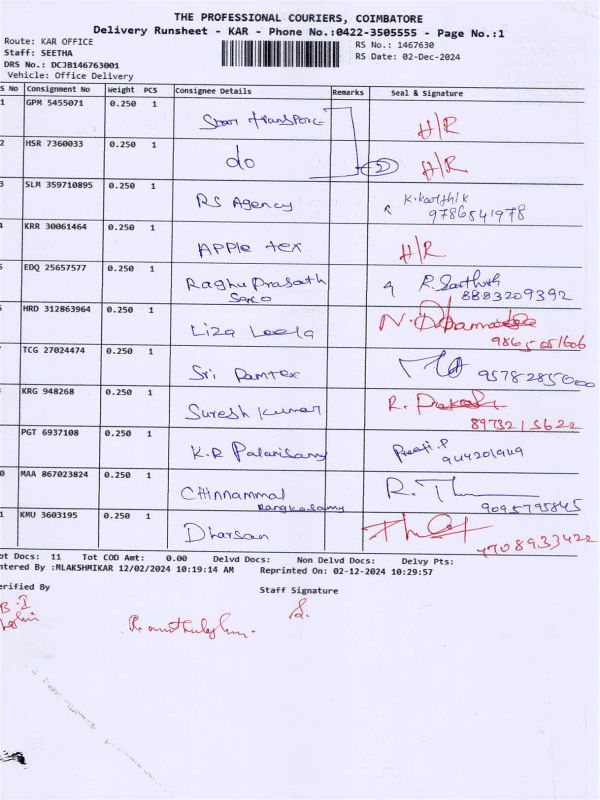 THE PROFESSIONAL COURIERS, COIMBATORE
Delivery Runsheet - KAR - Phone No.:0422-3505555 - Page No.:1
Route: KAR OFFICE
RS No.: 1467630
Staff: SEETHA
RS Date: 02-Dec-2024
DRS No.: DCJB146763001
Vehicle: Office Delivery
S No Consignment No Weight PCS Consignee Details Remarks Seal & Signature
1 GPM 5455071 0.250 1 Star transport H/R
2 HSR 7360033 0.250 1 do 2 H/R
3 SLM 359710895 0.250 1 RS Agency K.Karthik
9786541978
4 KRR 30061464 0.250 1 Apple tex H/R
5 EDQ 25657577 0.250 1 Raghu Prasath
8883209392
6 HRD 312863964 0.250 1 Liza Leela
9865051606
7 TCG 27024474 0.250 1 Sri Ramtex
KRG 948268 0.250 1 Suresh Kumar R. Prakash
PGT 6937108 0.250 1 K.R Palanisamy Preeti.P
0 MAA 867023824 0.250 1 Chinnammal
Rangasamy 9095795845
1 KMU 3603195 0.250 1 Dharsan
4708933422
ot Docs: 11 Tot COD Amt: 0.00 Delvd Docs: Non Delvd Docs: Delvy Pts:
ntered By :MLAKSHMIKAR 12/02/2024 10:19:14 AM Reprinted On: 02-12-2024 10:29:57
erified By Staff Signature